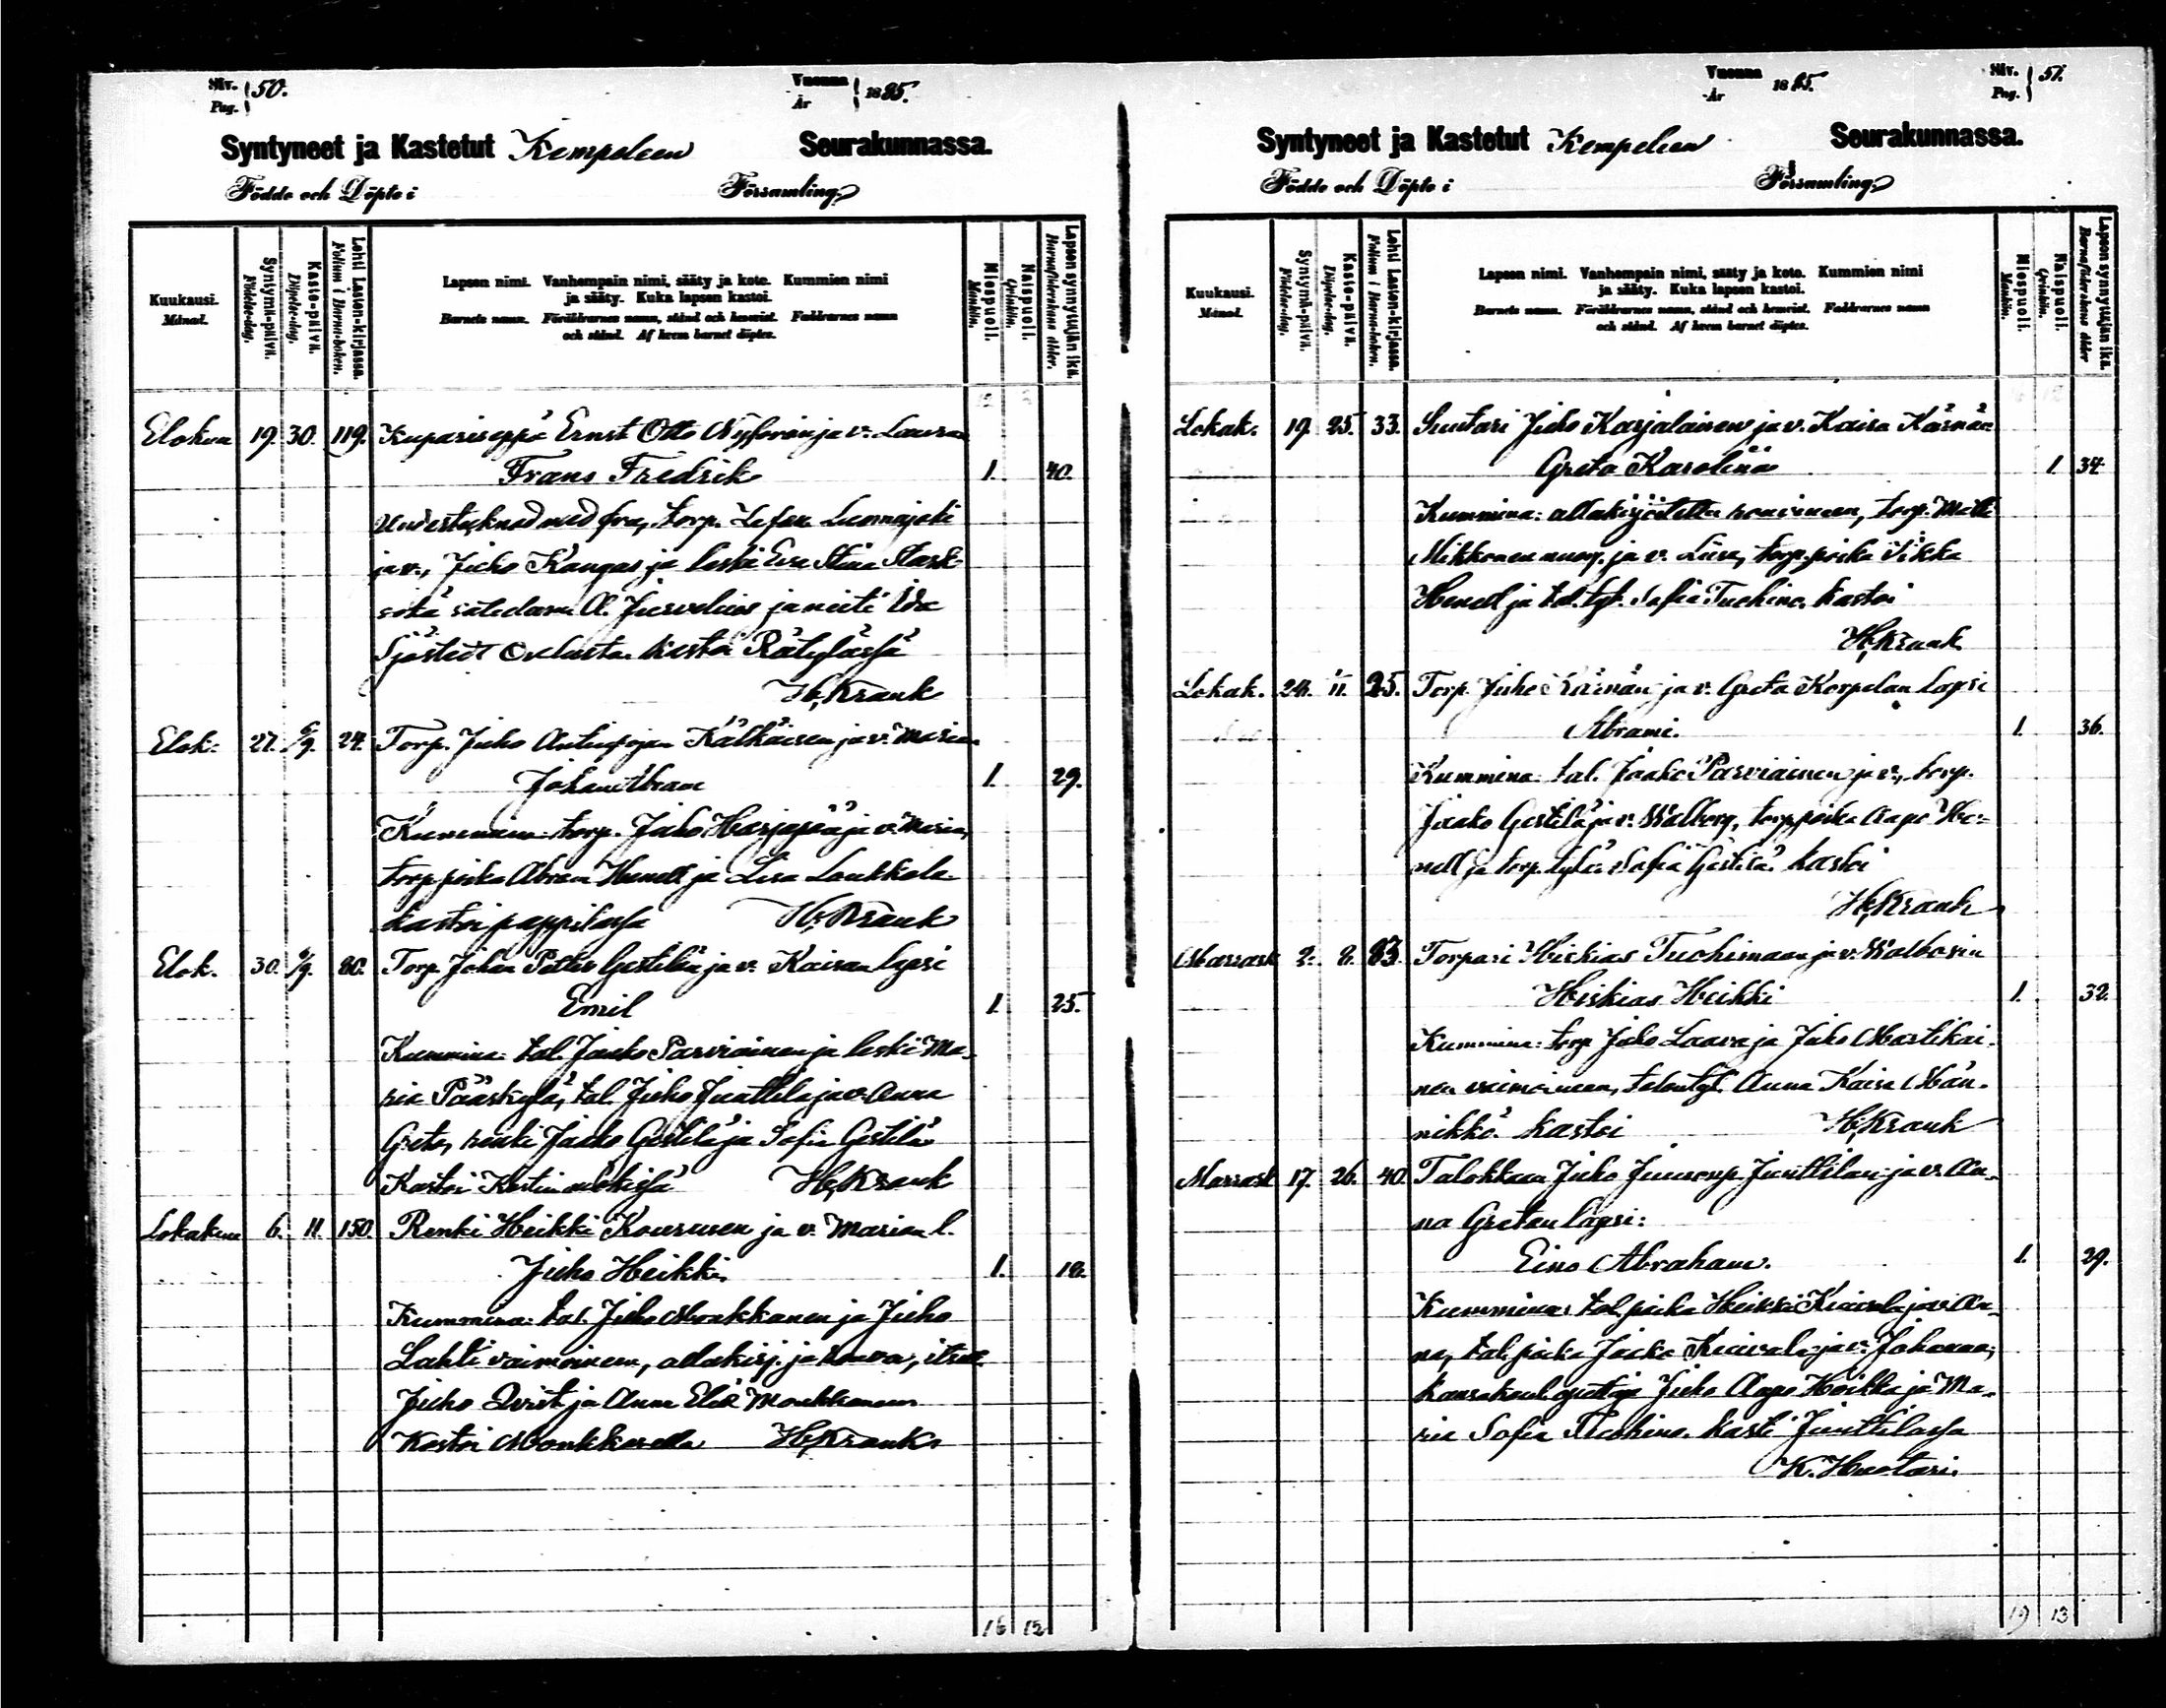 Siv. Pag. 50.
Vuonna År 1885.
Syntyneet ja Kastetut Kempeleen Seurakunnassa.
Födde och Döpte i Församling.
Kuukausi. Månad.
Syntymä-päivä. Födelse-dag.
Kasto-päivä. Döpelse-dag.
Lehti Lasten-kirjassa. Folium i Barna-boken.
Lapsen nimi. Vanhempain nimi, sääty ja koto. Kummien nimi
ja sääty. Kuka lapsen kastoi.
Barnets namn. Föräldrarnes namn, stånd och hemvist. Faddrarnes namn
och stånd. Af hvem barnet döptes.
Miespuoli. Mankön.
Naispuoli. Qvinkön.
Lapsen synnyttäjän ikä. Barnaföderskans ålder.
Elokuu 19. 30. 119. Kupariseppä Ernst Otto ja v. Lauran
Frans Fredrik 1. 40.
torp.
ja v., Juho Kangas ja leski Eva Stina
A. ja neiti Ida
Oulusta. Kastoi
H. Krank
Elok. 27. 6/9. 24. Torp. Juho Antinpojan Kälkäisen ja v. Marian
Johan Abram 1. 29.
Kummina: torp. Juho Harjapää ja v. Maria,
torp poika Abram Henell ja Lisa Laukkala
kastoi pappilassa H. Krank
Elok. 30. 6/9. 80. Torp. Johan Petter Gestilän ja v. Kaisan lapsi
Emil 1. 25.
Kummina: tal. Jaako Parviainen ja leski Ma-
ria Pääskylä, tal. Juho Junttila ja v. Anna
Greta, renki Jaako Gestilä ja Sofia Gestilä
Kastoi H. Krank
Lokakuu 6. 11. 150. Renki Heikki Kourusen ja v. Marian l.
Juho Heikki 1. 18.
Kummina: tal. Juho Moukkanen ja Juho
Lahti vaimoineen, allekirj. ja rouva, itsell.
Juho Qvist ja Anna Moukkanen
Kastoi H. Krank
16 12
Vuonna År 1885.
Siv. Pag. 51.
Syntyneet ja Kastetut Kempeleen Seurakunnassa.
Födde och Döpte i Församling.
Kuukausi. Månad.
Syntymä-päivä. Födelse-dag.
Kasto-päivä. Döpelse-dag.
Lehti Lasten-kirjassa. Folium i Barna-boken.
Lapsen nimi. Vanhempain nimi, sääty ja koto. Kummien nimi
ja sääty. Kuka lapsen kastoi.
Barnets namn. Föräldrarnes namn, stånd och hemvist. Faddrarnes namn
och stånd. Af hvem barnet döptes.
Miespuoli. Mankön.
Naispuoli. Qvinkön.
Lapsen synnyttäjän ikä. Barnaföderskans ålder
Lokak. 19. 25. 33. Suutari Juho Karjalainen ja v. Kaisa Kärnän
Greta Karolina 1 34
Kummina: allekirjoittettu rouvineen, torp. Matti
Mikkonen ja v. Liisa, torp. poika Iikka
Henell ja tal. tyt. Sofia Tuohino. Kastoi
H. Krank
Lokak. 24. 25. Torp. Juho Kärnän ja v. Greta Korpelan lapsi
Abrami. 1. 36.
Kummina: tal. Jaako Parviainen ja v., torp.
Jaako Gestilä ja v. Walborg, torp poika Aapo He-
nell ja torp. tytär Sofia Gestilä. Kastoi
H. Krank
Marrask 2. 8. 83. Torpari Hiskias Tuohimaan ja v. Walborin
Hiskias Heikki 1. 32.
Kummina: torp Juho Laava ja Juho Martikai-
nen vaimoineen, talontyt. Anna Kaisa Män-
nikkö. kastoi H. Krank
Marrask 17. 26. 40. Talokkaan Juho Junttilan ja v. An-
na Gretan lapsi:
Eino Abraham. 1. 29.
Kummina: tal. poika Heikki Kiuvala ja v. An-
na, tal. poika Jaako Kiuvala ja v. Johanna,
kansakoul opettaja Juho Aapo Heikka ja Ma-
ria Sofia Tuohino. Kasti Junttilassa
K. Huotari.
19 13